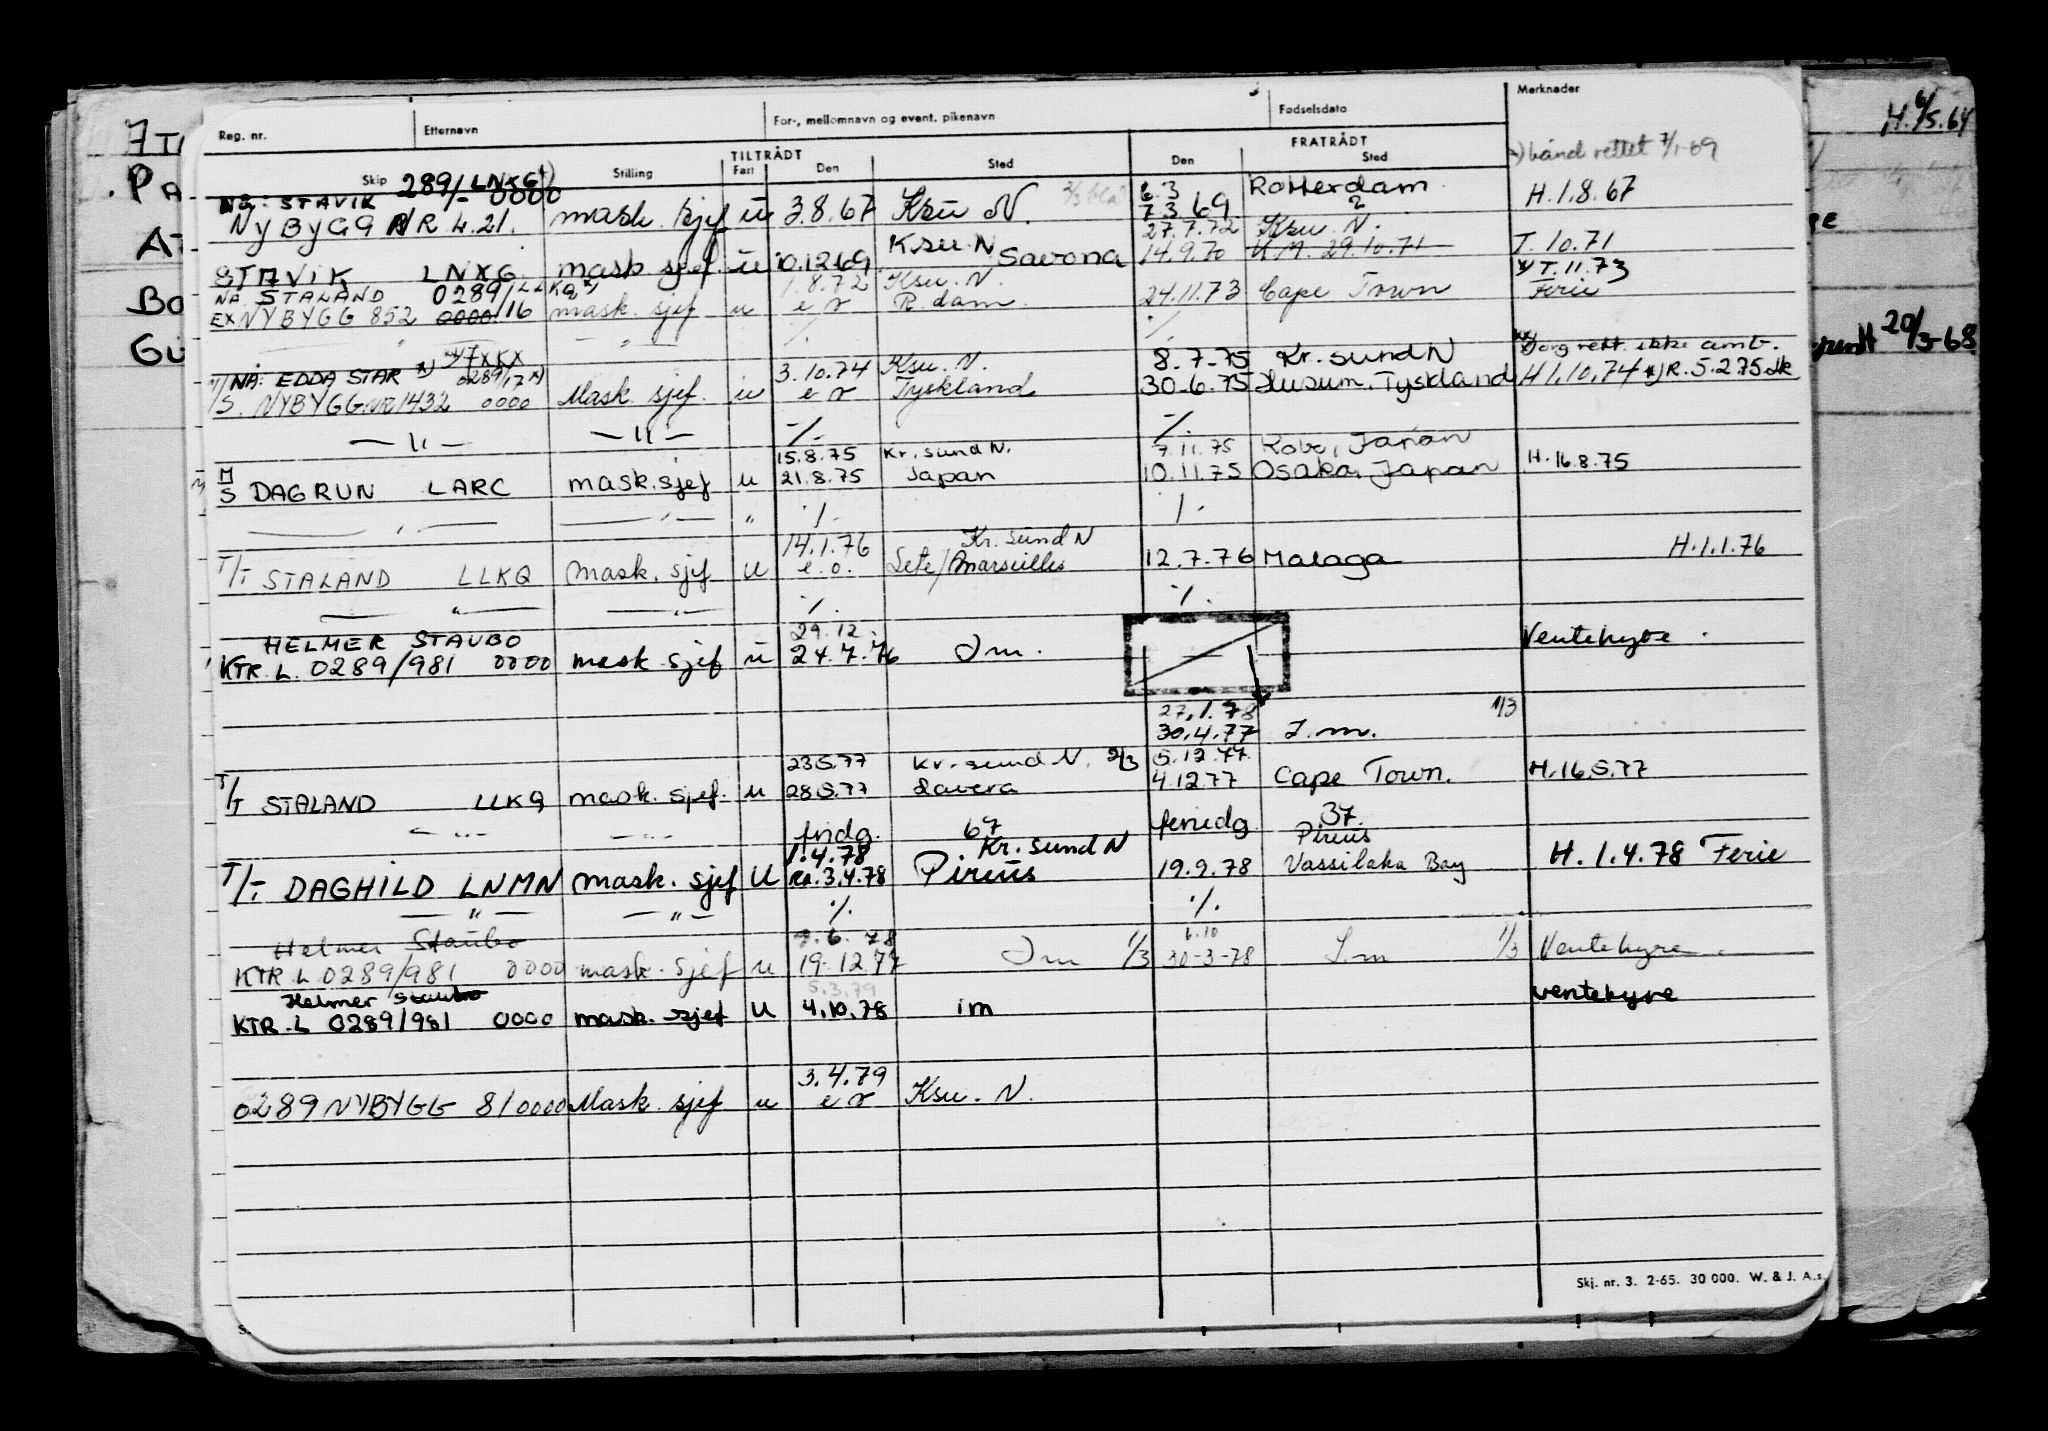 Reg. nr. Etternavn For-, mellomnavn og event. pikenavn Fødselsdato Merknader
TILTRÅDT FRATRÅDT
Skip Stilling Fart Den Sted Den Sted
bånd rettet 7/1-69
289/- LNXG
Nå: STAVIK 0000 6.3 Rotterdam
NYBYGG NR 421. mask sjef u 3.8.67 Ksu N. 7.3.69 H.1.8.67
Ksu N 27.7.72 Ksu. N.
STAVIK LNXG mask sjef u 10.12.69 Savona 14.9.70 K.M. 29.10.71 T. 10.71
NÅ STALAND 0289/LLKQ 1.8.72 Ksu. N. T.11.73
EX NYBYGG 852 0000/16 mask. sjef u e r R.dam 24.11.73 Cape Town Ferie
— " — — " — ·/. ·/.
NÅ: EDDA STAR 0289/17 3.10.74 Ksu. N. 8.7-75 Kr. sund N
M/S. NYBYGG NR 1432 0000 Mask sjef. u e r Tyskland 30.6.75 Husum, Tyskland H 1.10.74 R.5.2.75
— " — — " — ·/. ·/.
15.8.75 Kr. sund N. 7.11.75 Kobe, Japan
M/S DAGRUN LARC mask.sjef u 21.8.75 Japan 10.11.75 Osaka, Japan H.16.8.75
— " — — " — " ·/. ·/.
14.1.76 Kr. sund N
T/T STALAND LLKQ mask. sjef u e.o. Sete/Marseilles 12.7.76 Malaga H.1.1.76
— " — — " — ·/. ·/.
HELMER STAUBO 29.12.
KTR. L. 0289/981 0000 mask. sjef u 24.7.76 I m. Ventehyre
27.1.78 1/3
30.4.77 I.m.
23.5.77 Kr. sund N. 2/3 5.12.77
T/T STALAND LLKQ mask. sjef. u 28.5.77 Lavera 4.12.77 Cape Town. H.16.5.77
— " — — " — fridg. 67 feriedg. 37.
1.4.78 Kr. sund N Pireus
T/T DAGHILD LNMN mask. sjef U ca.3.4.78 Pireus 19.9.78 Vassilaka Bay H. 1.4.78 Ferie
— " — — " — ·/. ·/.
Helmer Staubo 9.6.78 6.10
KTR. L 0289/981 0000 mask. sjef u 19.12.77 I m 1/3 30-3-78 I.m 1/3 Ventehyre
Helmer Staubo 5.3.79
KTR. L 0289/981 0000 mask. sjef U 4.10.78 im ventehyre
3.4.79
0289 NYBYGG 81 0000 Mask. sjef u e r Ksu. N.
Skj. nr. 3. 2-65. 30 000. W. & J. A.s.
PA
AT
BO
GU
H. 6/5.64
20/3-68